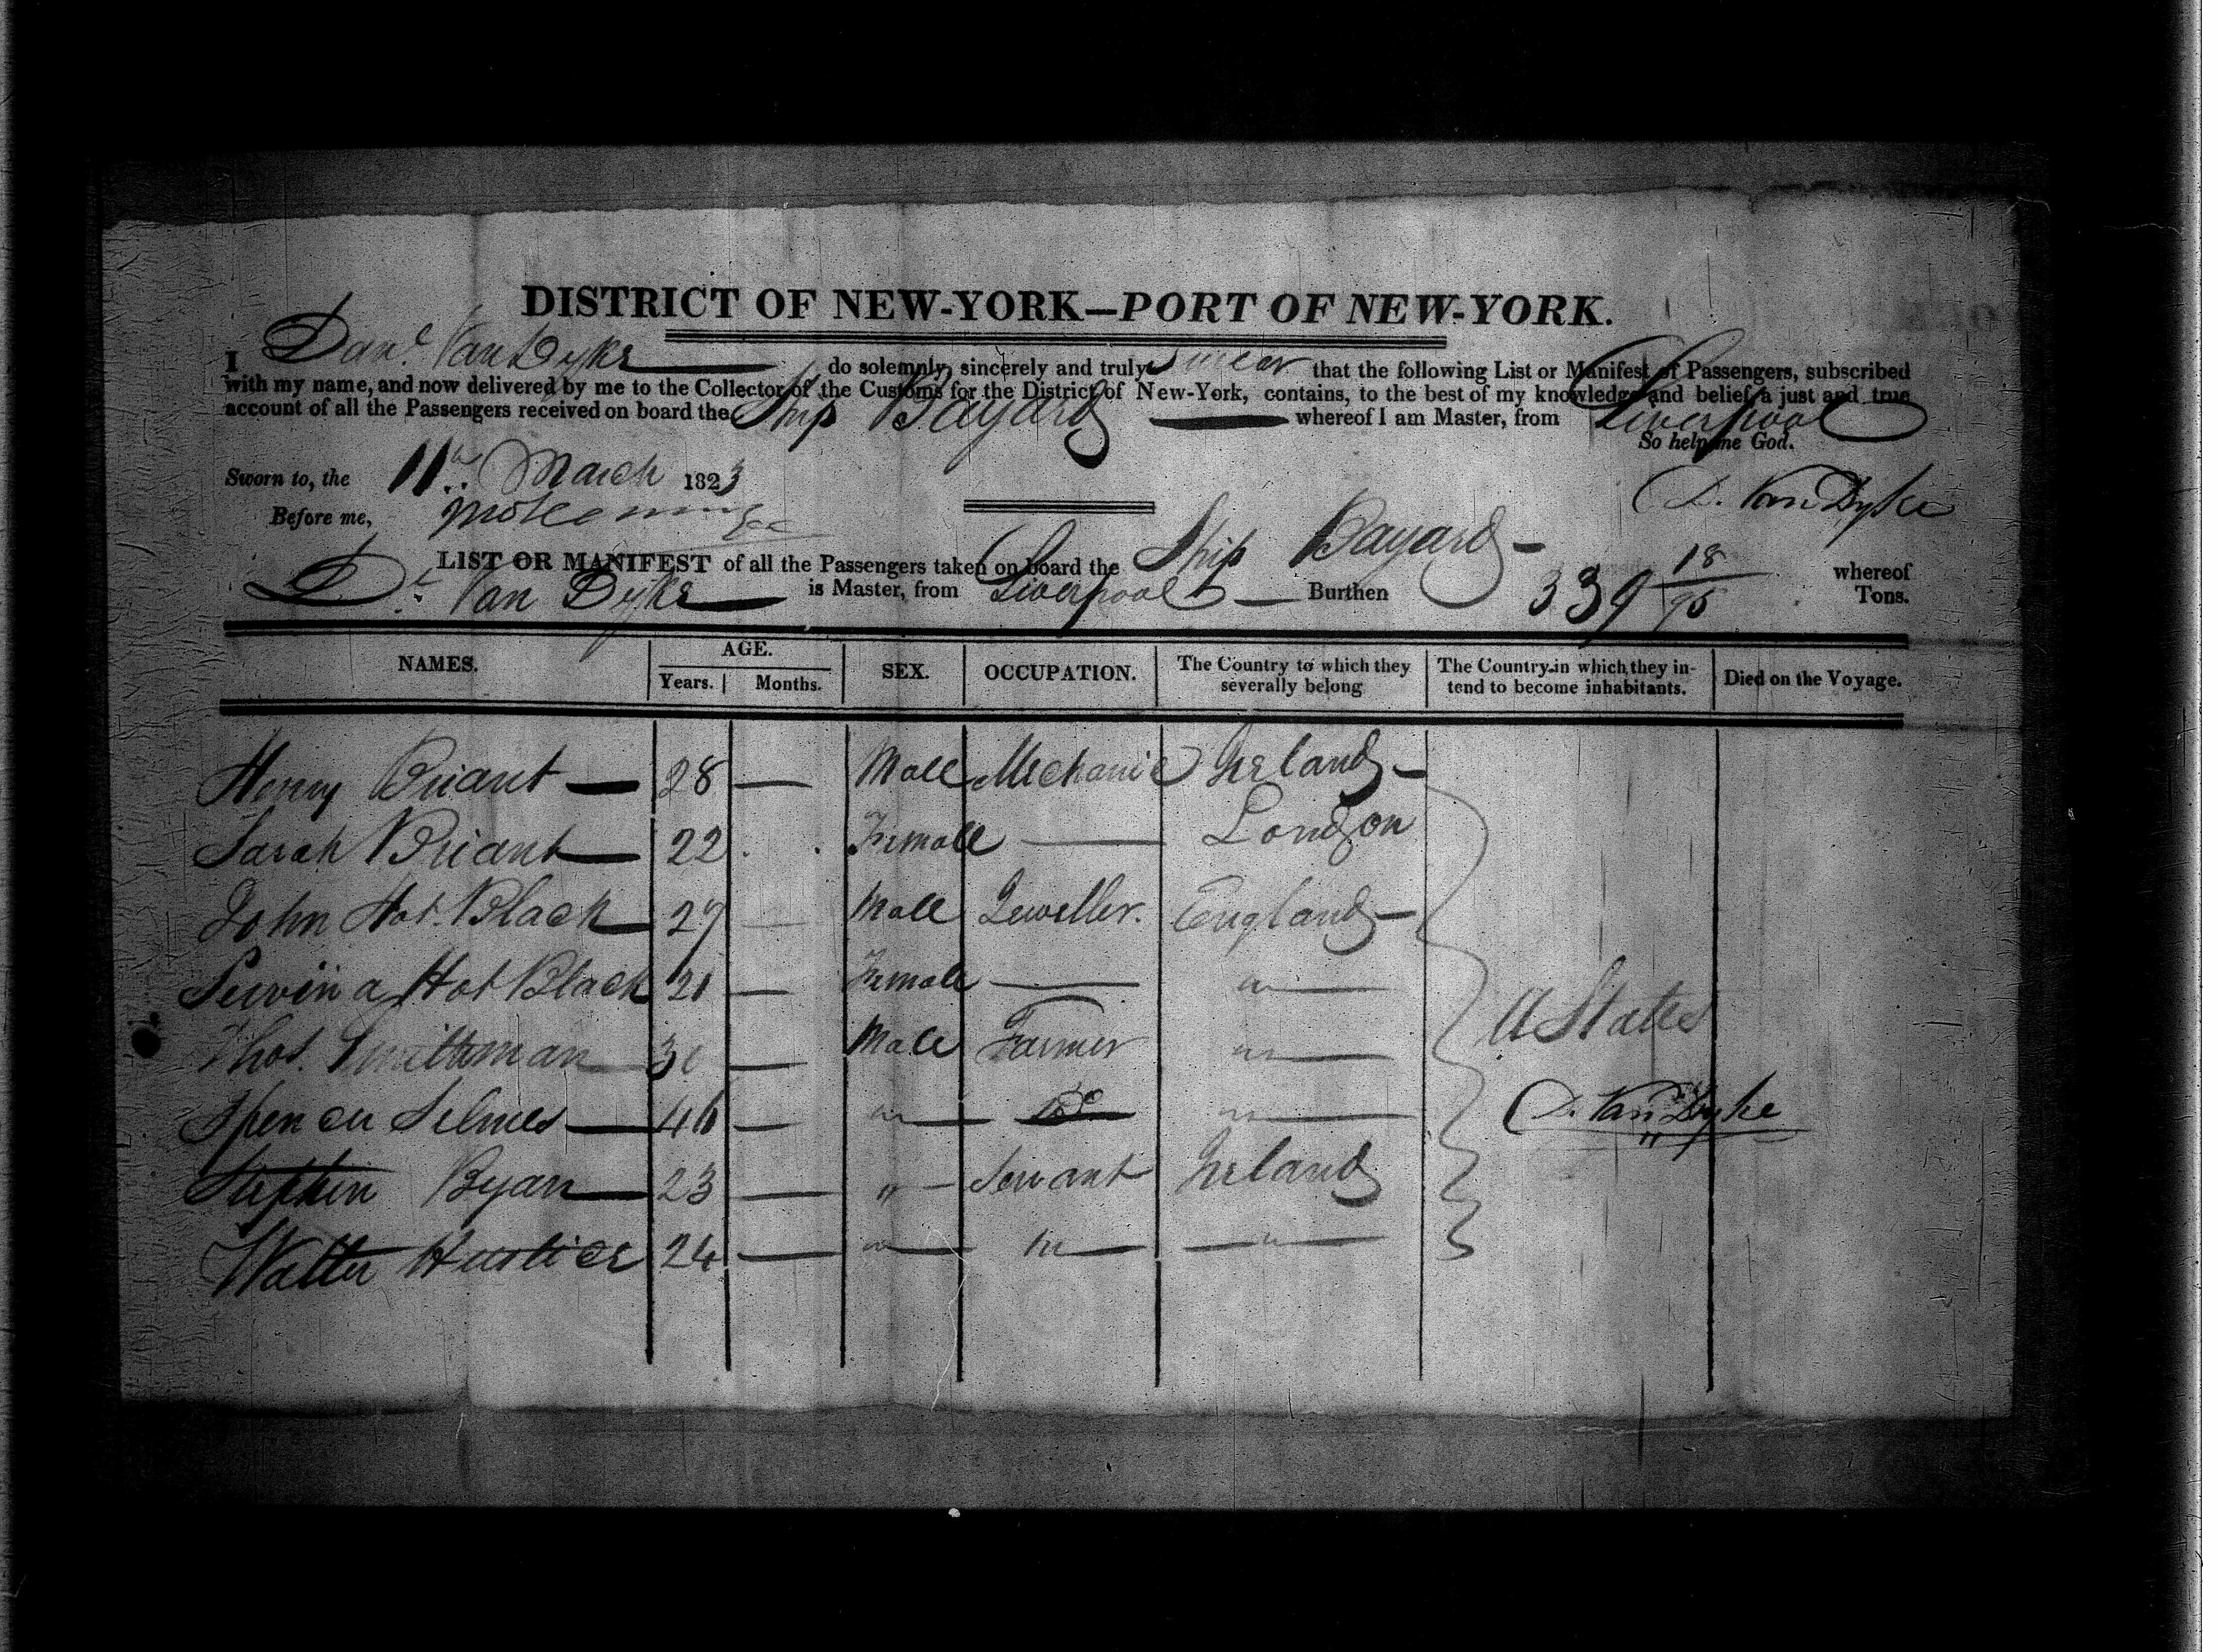 DISTRICT OF NEW-YORK—PORT OF NEW-YORK.
I Danl. Van Dyke do solemnly, sincerely and truly swear that the following List or Manifest of Passengers, subscribed
with my name, and now delivered by me to the Collector of the Customs for the District of New-York, contains, to the best of my knowledge and belief, a just and true
account of all the Passengers received on board the Ship Bayard whereof I am Master, from Liverpool
So help me God.
Sworn to, the 11th March 1823
D. Van Dyke
Before me,
LIST OR MANIFEST of all the Passengers taken on board the Ship Bayard whereof
Dl. Van Dyke is Master, from Liverpool Burthen 339 18/95 Tons.
NAMES. AGE. SEX. OCCUPATION. The Country to which they severally belong The Country in which they intend to become inhabitants. Died on the Voyage.
Years. Months.
Henry Briant — 28 — Male Mechanic Ireland —
Sarah Briant — 22 Female — London
John Hot. Black — 27 — Male Jeweller. England —
Hot Black 21 — Female — " —
Thos. Smithman 30 — Male Farmer " —
U States
Spencer Selmes — 46 — " — Do " —
D. Van Dyke
Stephen Ryan — 23 — " — Servant Ireland
Walter 24 — " — " — " —